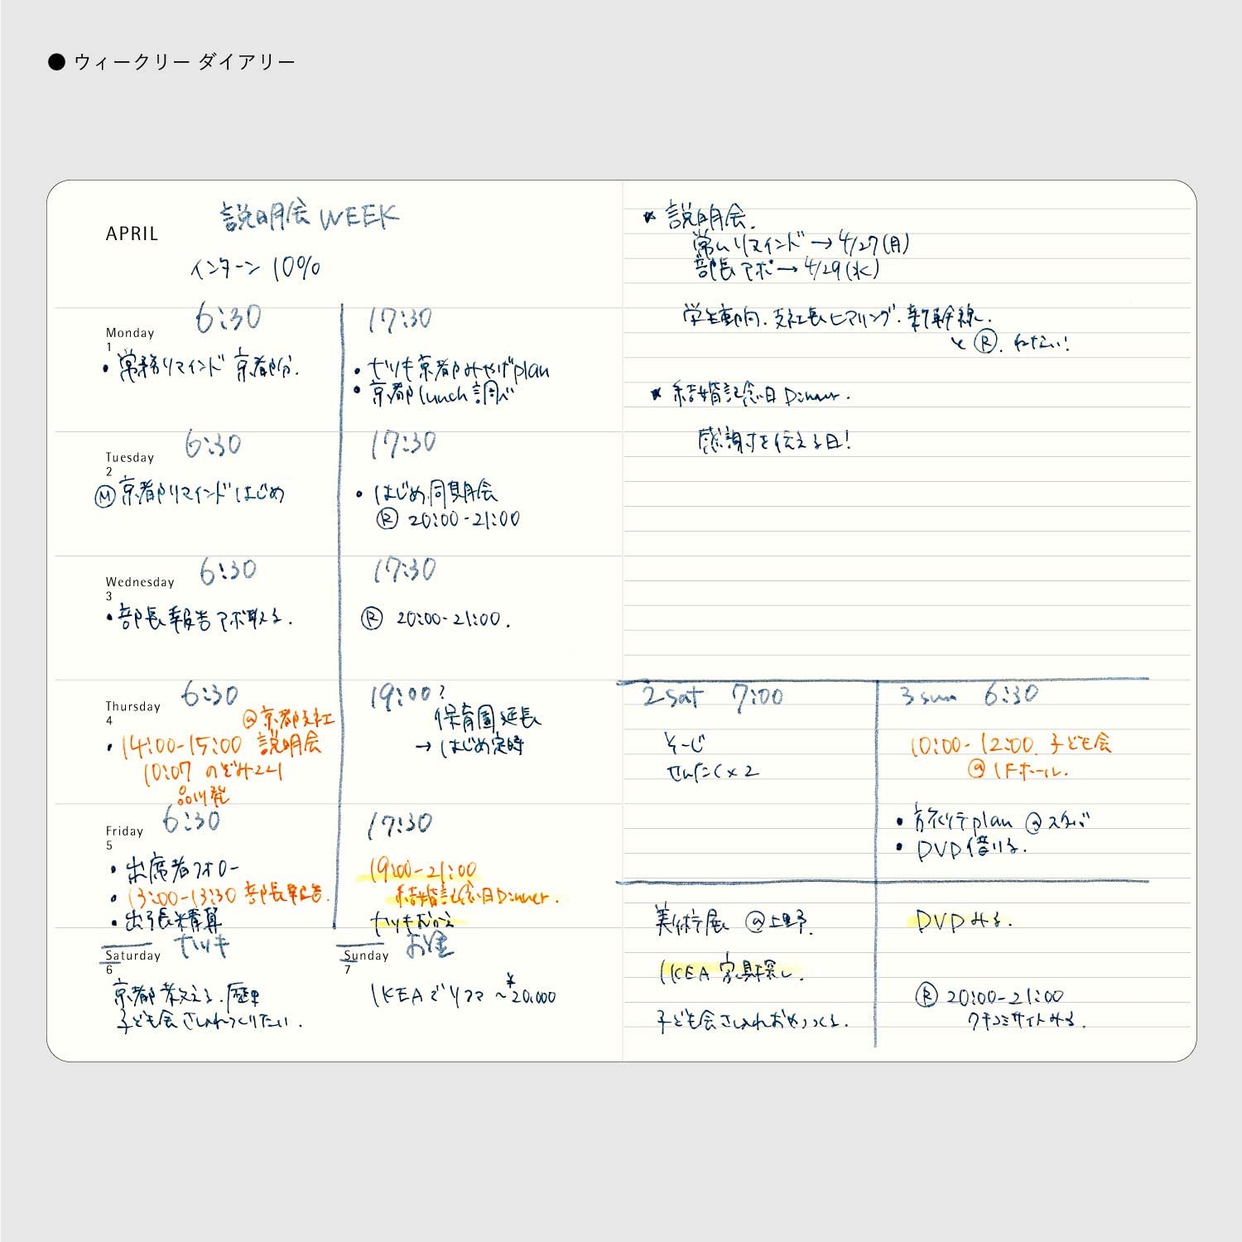 ● ウィークリー ダイアリー
APRIL
説明会 WEEK
インターン 10%
Monday
1
6:30
・常務リマインド 京都分.
17:30
・ナツキ京都おみやげplan
・京都 lunch 調べ
Tuesday
2
6:30
Ⓜ京都リマインドはじめ
17:30
・はじめ.同期会
Ⓡ 20:00-21:00
Wednesday
3
6:30
・部長報告アポ取る.
17:30
Ⓡ 20:00-21:00.
Thursday
4
6:30
@京都支社
・14:00-15:00 説明会
10:07 のぞみ221
品川発
19:00?
保育園延長
→はじめ定時
Friday
5
6:30
・出席者フォロー
・13:00-13:30 部長報告.
・出張精算
17:30
19:00-21:00
結婚記念日Dinner.
ナツキむかえ
Saturday
6
ナツキ
京都教える.歴史
子ども会さしいれつくりたい.
Sunday
7
お金
IKEAでソファ ~¥20,000
* 説明会.
常ムリマインド→4/27(月)
部長アポ→4/29(水)
学生動向.支社長ヒアリング.新幹線.
とⓇ.ねたい!
* 結婚記念日 Dinner.
感謝を伝える日!
2 sat 7:00
そーじ
せんたく×2
美術展 @上野.
IKEA 家具探し.
子ども会さしいれおやつつくる.
3 sun 6:30
10:00-12:00. 子ども会
@1Fホール.
・旅行plan @スタバ
・DVD借りる.
DVDみる.
Ⓡ 20:00-21:00
クチコミサイトみる.